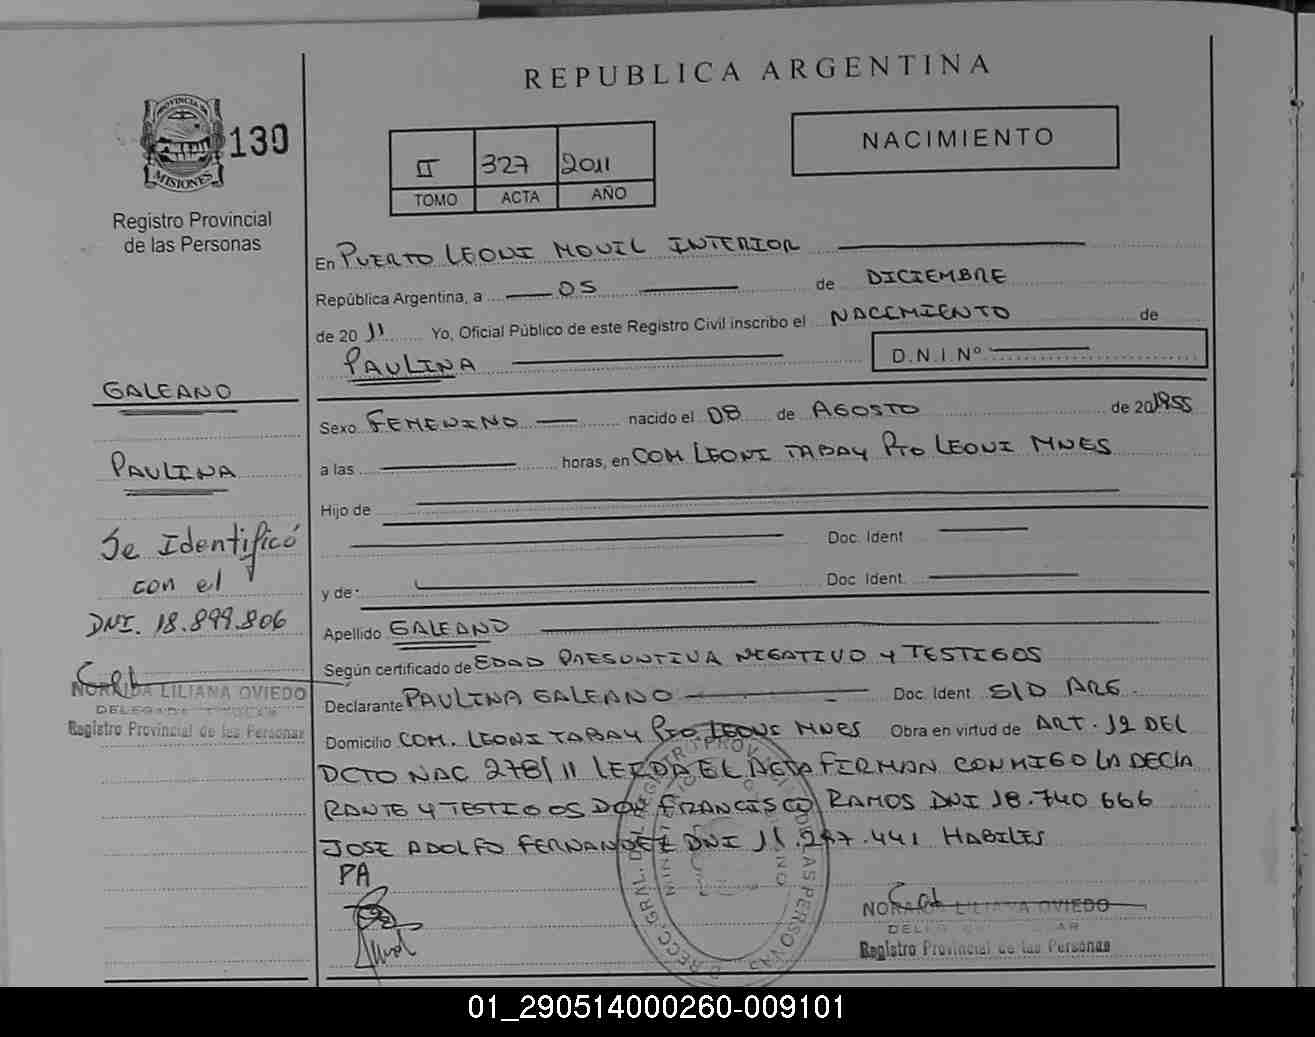 REPUBLICA ARGENTINA
PROVINCIA DE
MISIONES
130
Registro Provincial
de las Personas
II 327 2011
TOMO ACTA AÑO
NACIMIENTO
En PUERTO LEONI MOVIL INTERIOR
República Argentina, a 05 de DICIEMBRE
de 20 11 Yo, Oficial Público de este Registro Civil inscribo el NACIMIENTO de
PAULINA D.N.I. Nº
GALEANO
PAULINA
Se Identificó
con el
DNI. 18.899.806
NORAIDA LILIANA OVIEDO
DELEGADA TITULAR
Registro Provincial de las Personas
Sexo FEMENINO nacido el 08 de AGOSTO de 20 1955
a las horas, en COM LEONI TABAY PTO LEONI MNES
Hijo de
Doc. Ident
y de Doc. Ident.
Apellido GALEANO
Según certificado de EDAD PRESUNTIVA NEGATIVO Y TESTIGOS
Declarante PAULINA GALEANO Doc. Ident S/D ARG.
Domicilio COM. LEONI TABAY PTO LEONI MNES Obra en virtud de ART. 12 DEL
DCTO NAC 278/11 LEIDA EL ACTA FIRMAN CONMIGO LA DECLA
RANTE Y TESTIGOS DON FRANCISCO RAMOS DNI 18.740 666
JOSE ADOLFO FERNANDEZ DNI 11.247.441 HABILES
PA
NORAIDA LILIANA OVIEDO
DELEGADA TITULAR
Registro Provincial de las Personas
01_290514000260-009101